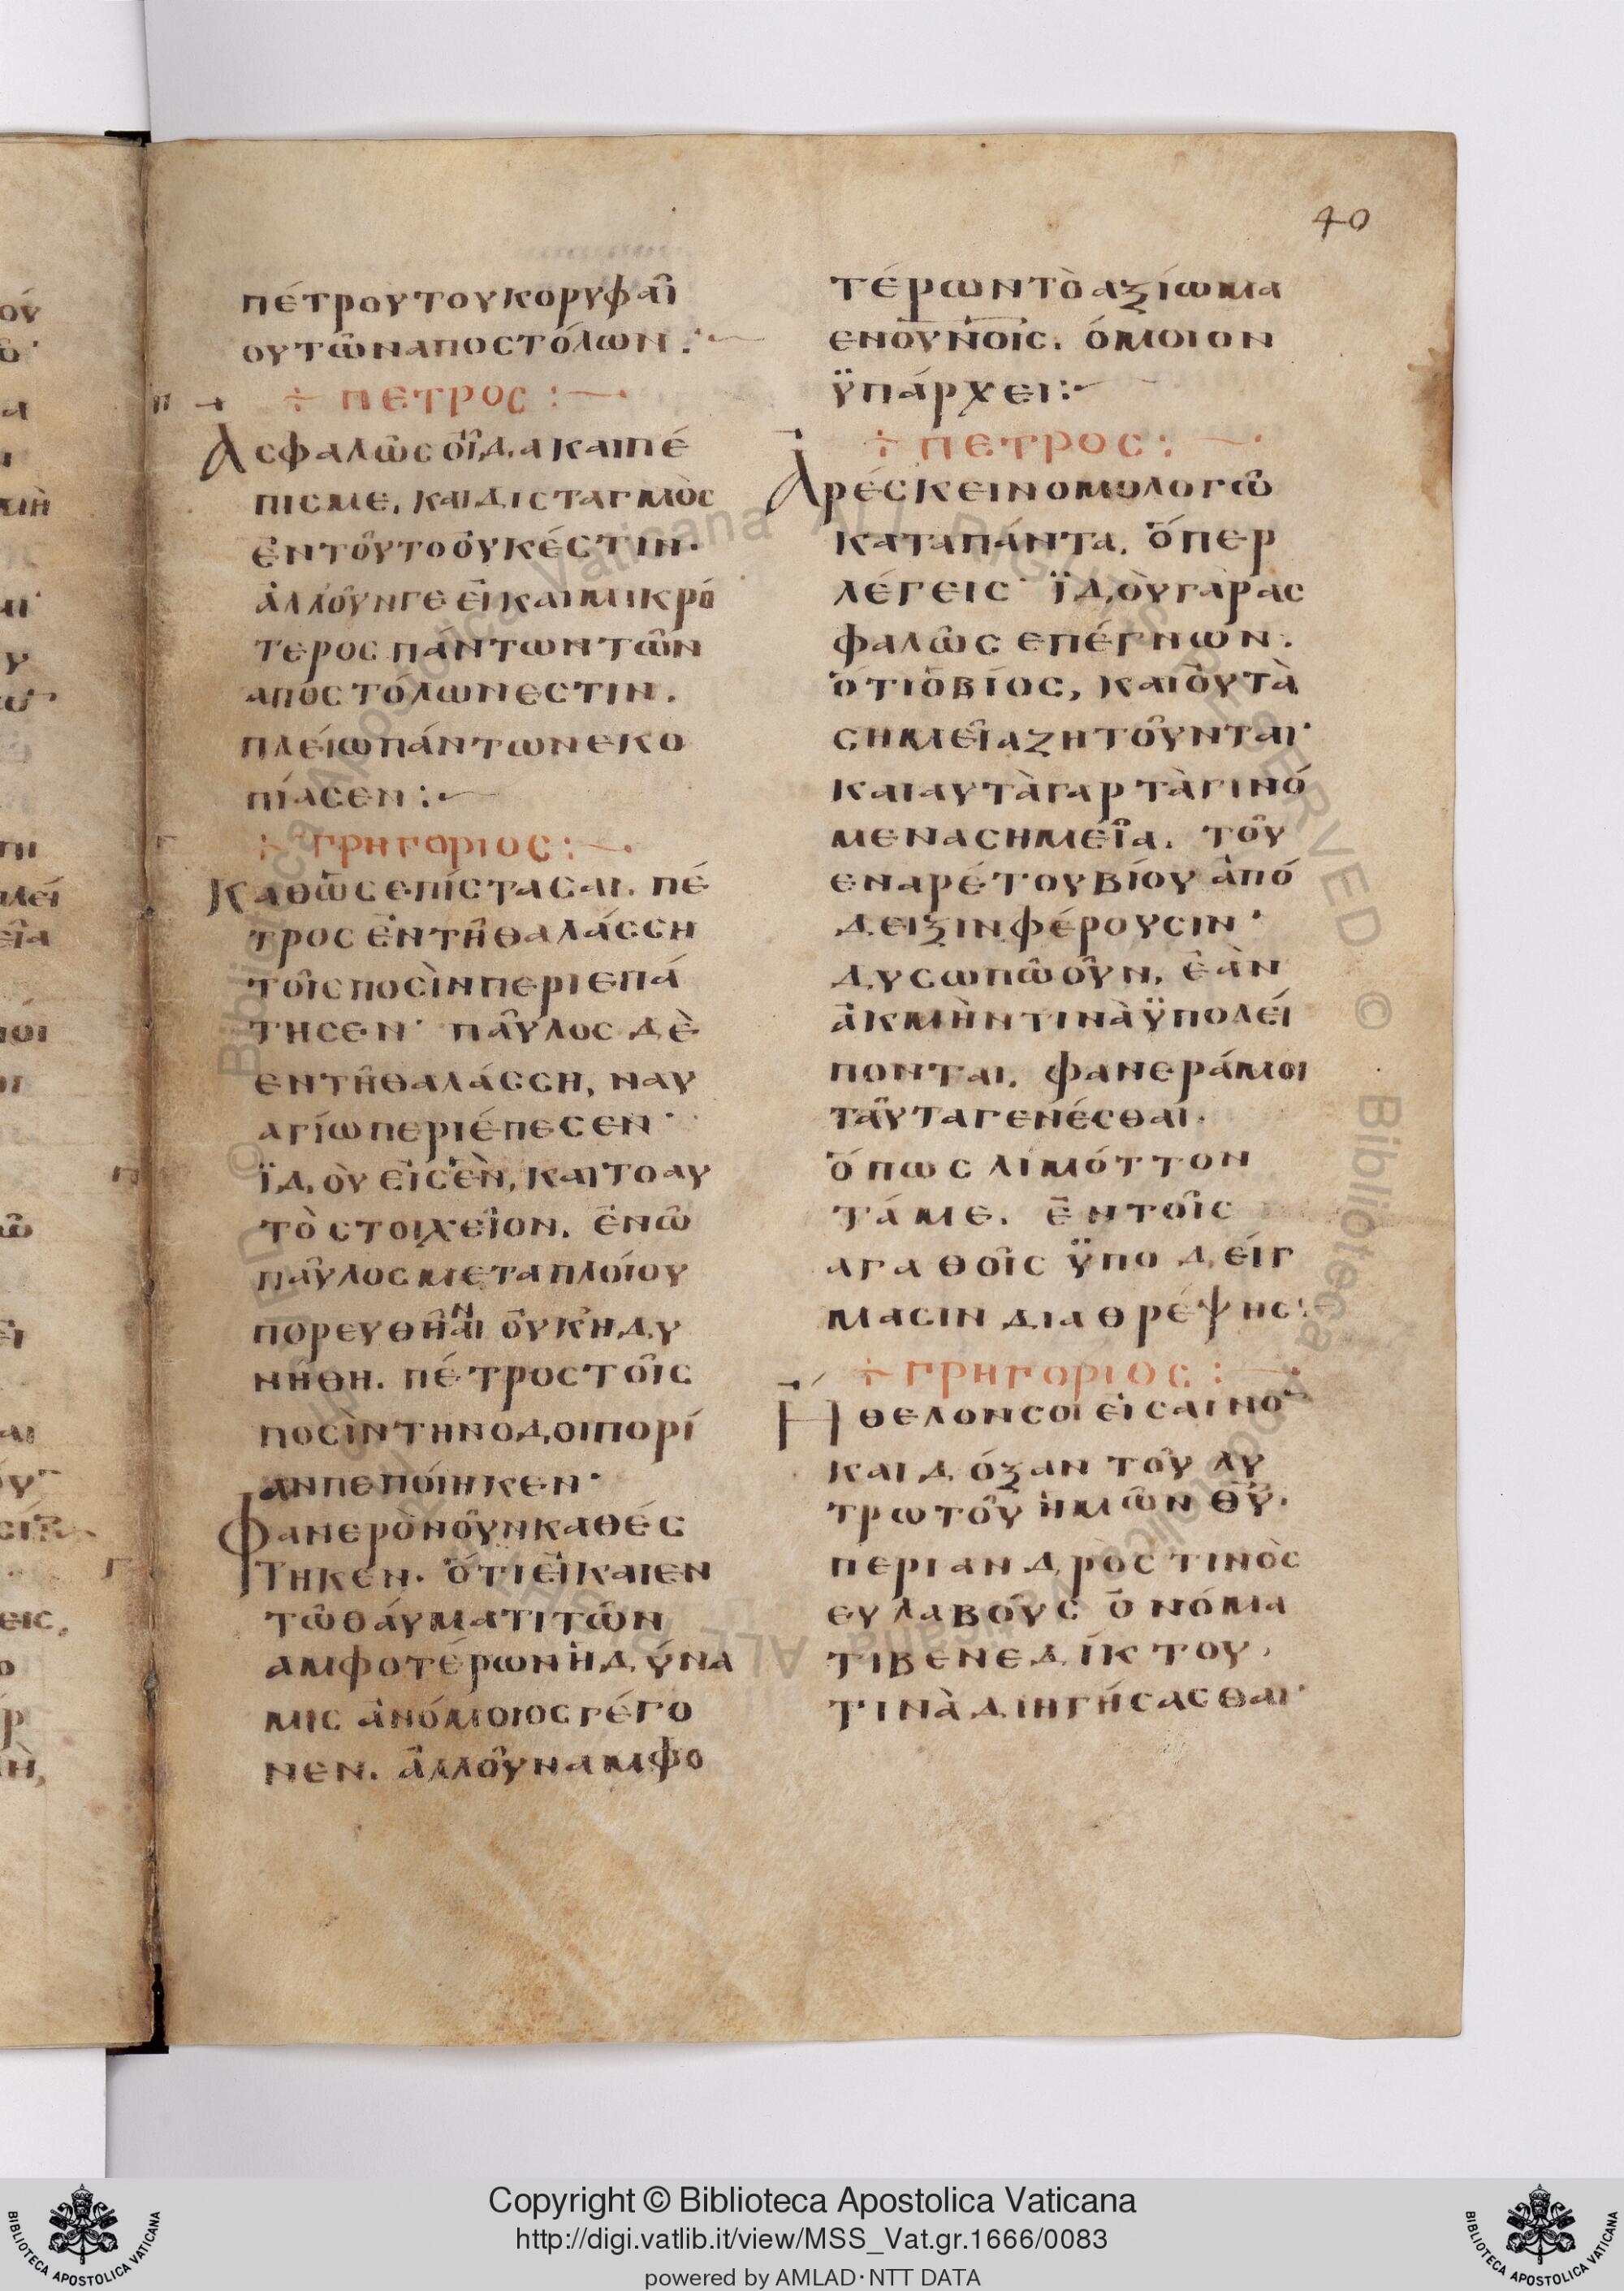 40
πέτρου του κορυφαῖ
ου τῶν αποστόλων :
÷ ΠΕΤΡΟΣ :
Ασφαλῶς οῖδα και πέ
πισμε, και δισταγμὸς
ἐν τοῦτο οὐκ έστιν·
ἀλλοῦνγε εἶ και μικρό
τερος πάντων τῶν
αποστόλων εστιν.
πλείω πάντων εκο
πίασεν :
÷ ΓΡΗΓΟΡΙΟΣ :
Καθῶς επίστασαι, πέ
τρος ἐν τῆ θαλάσση
τοῖς ποσὶν περιεπά
τησεν· παῦλος δὲ
εν τῆ θαλάσση, ναυ
αγίω περιέπεσεν·
ϊδοὺ εἰς ἐν, και το αυ
τὸ στοιχεῖον, ἐν ῶ
παῦλος μετα πλοίου
πορευθῆναι οὐκ ἠδυ
νήθη. πέτρος τοῖς
ποσὶν την οδοιπορί
αν πεποίηκεν·
Φανερὸν οῦν καθέσ
τηκεν. ὅτι εἰ και εν
τῶ θάυματι τῶν
αμφοτέρων ἡ δύνα
μις ἀνόμοιος γέγο
νεν. ἀλλοῦν αμφο
τέρων τὸ αξίωμα
εν οὐνοῖς. όμοιον
ϋπάρχει :
÷ ΠΕΤΡΟΣ :
Ἀρέσκειν ομολογῶ
κατα πάντα, ὅπερ
λέγεις· ϊδοὺ γὰρ ασ
φαλῶς επέγνων.
ὅτι ὁ βίος, και οὐ τὰ
σημεῖα ζητοῦνται·
και αυτὰ γαρ τὰ γινό
μενα σημεῖα, τοῦ
εναρέτου βίου ἀπό
δειξιν φέρουσιν·
δυσωπῶ οῦν, ἐὰν
ἀκμὴν τινὰ ϋπολεί
πονται, φανερά μοι
ταῦτα γενέσθαι.
ὅπως λιμόττον
τά με, ἐν τοῖς
αγαθοῖς ϋποδείγ
μασιν διαθρέψης:
÷ ΓΡΗΓΟΡΙΟΣ :
Ηθελον σοι εἰς αινο
και δόξαν τοῦ λυ
τρωτοῦ ἡμῶν θῦ.
περι ανδρὸς τινὸς
ευλαβοῦς ὀνόμα
τι βενεδίκτου,
τινὰ διηγήσασθαι·
Copyright © Biblioteca Apostolica Vaticana
http://digi.vatlib.it/view/MSS_Vat.gr.1666/0083
powered by AMLAD·NTT DATA